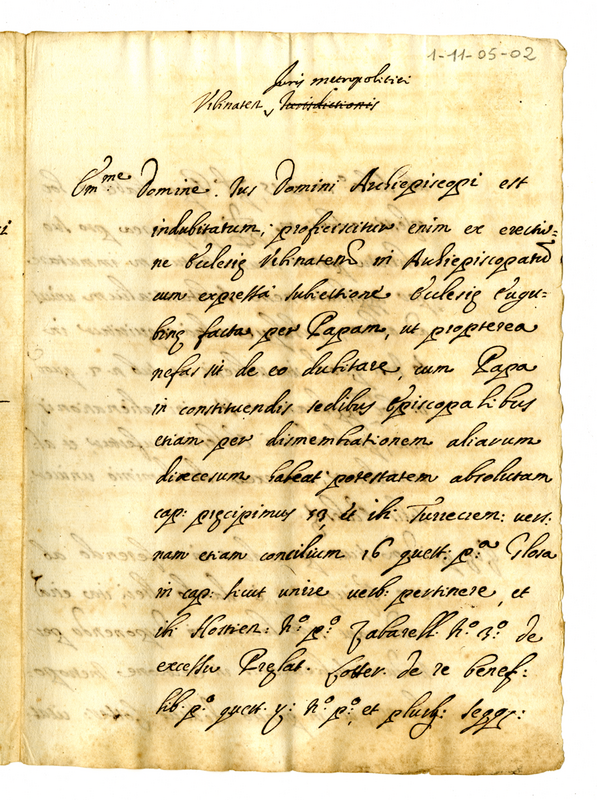 1-11-05-02
Juris metropolitici
Urbinaten Jurisdictionis
Emme Domine. Jus Domini Archiepiscopi est
indubitatum, proficiscitur enim ex erectio=
ne Ecclesię Urbinaten in Archiepiscopatū
cum expressa subiectione Ecclesię Eugu=
binę facta per Papam, ut propterea
nefas sit de eo dubitare, cum Papa
in constituendis sedibus Episcopalibus
etiam per dismembrationem aliarum
diœcesum habeat potestatem absolutam
cap: pręcipimus et ibi Turrecrem: vers:
nam etiam concilium 16 quęst: p.a Glosa
in cap: sicut unire verb: pertinere, et
ibi Hostien: n.o p.o Zabarell: n.o 3.o de
excessu Pręlat. Lotter. de re benef:
lib: p.o quęst. n.o p.o, et plurę: seqq: